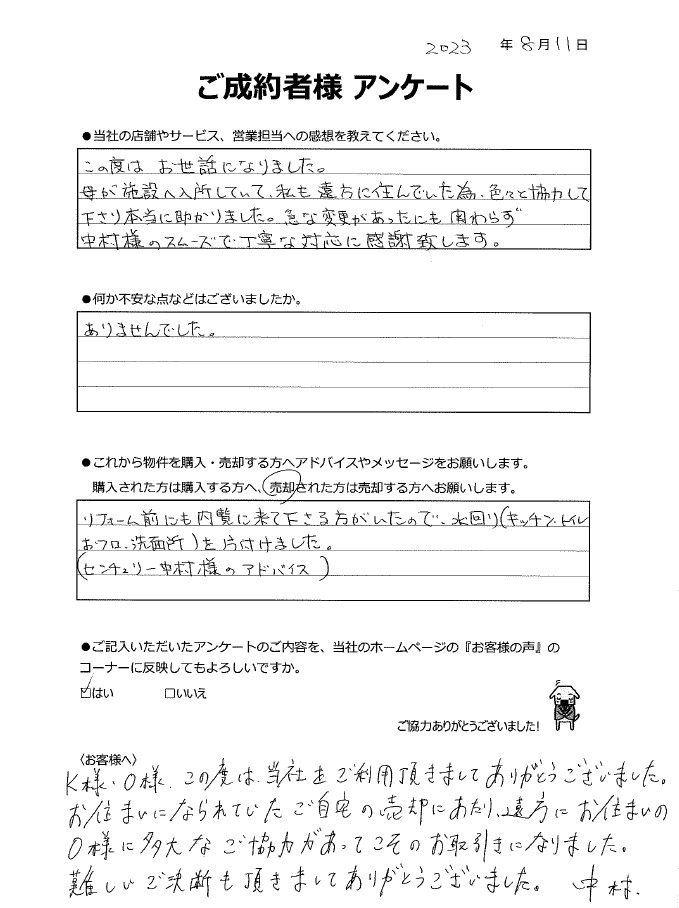 2023 年 8月 11日
ご成約者様 アンケート
●当社の店舗やサービス、営業担当への感想を教えてください。
この度は お世話になりました。
母が施設へ入所していて、私も遠方に住んでいた為、色々と協力して
下さり本当に助かりました。急な変更があったにも関わらず
中村様のスムーズで丁寧な対応に感謝致します。
●何か不安な点などはございましたか。
ありませんでした。
●これから物件を購入・売却する方へアドバイスやメッセージをお願いします。
購入された方は購入する方へ、売却された方は売却する方へお願いします。
リフォーム前にも内覧に来て下さる方がいたので、水回り(キッチン、トイレ
おフロ、洗面所)を片付けました。
(センチュリー中村様のアドバイス)
●ご記入いただいたアンケートのご内容を、当社のホームページの『お客様の声』の
コーナーに反映してもよろしいですか。
☑はい □いいえ
ご協力ありがとうございました!
〈お客様へ〉
K様・O様、この度は、当社をご利用頂きましてありがとうございました。
お住まいになられていたご自宅の売却にあたり、遠方にお住まいの
O様に多大なご協力があってこそのお取引きになりました。
難しいご決断も頂きましてありがとうございました。 中村.